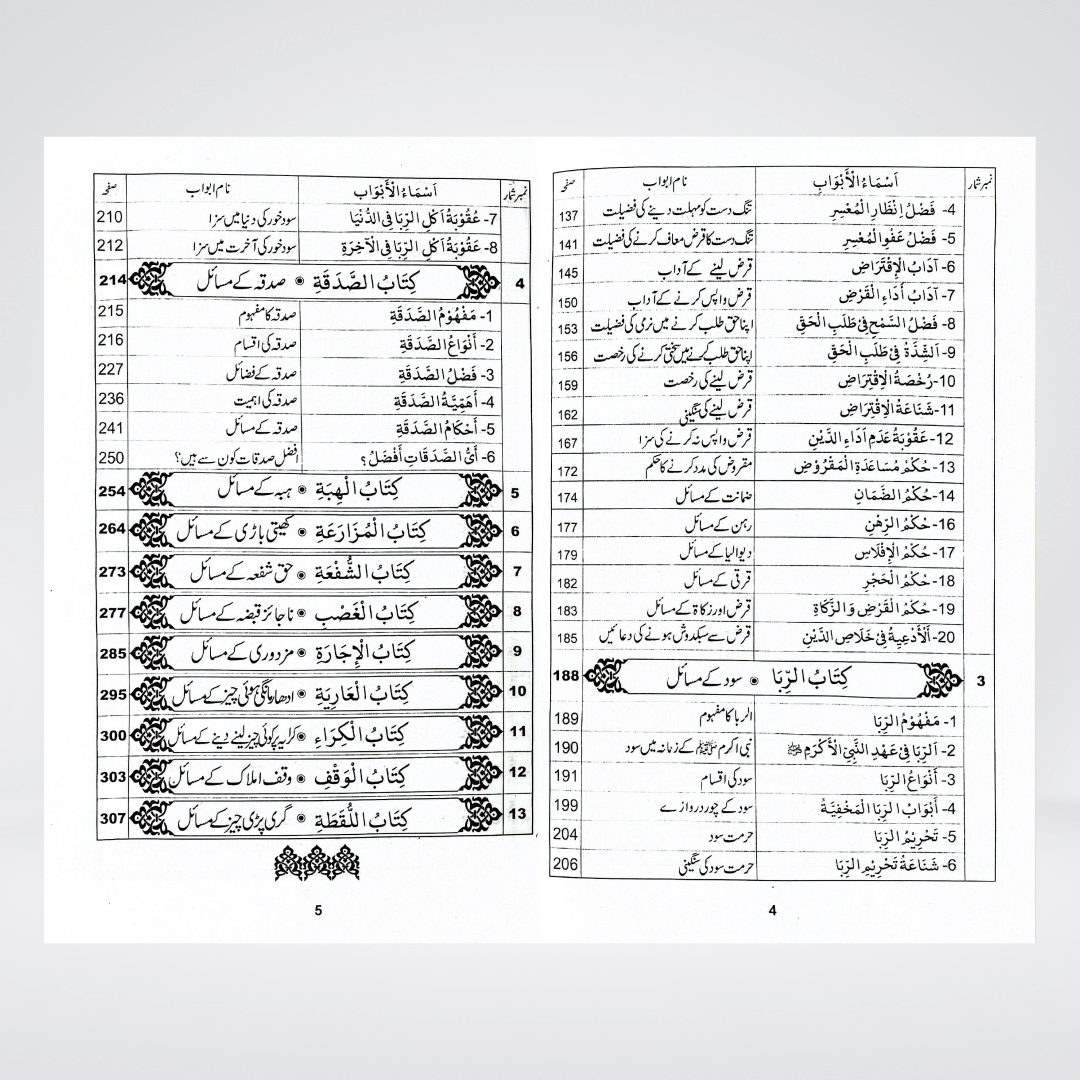 نمبر شمار اَسْمَاءُ الْأَبْوَابِ نام ابواب صفحہ
4- فَضْلُ اِنْظَارِ الْمُعْسِرِ تنگ دست کو مہلت دینے کی فضیلت 137
5- فَضْلُ عَفْوِ الْمُعْسِرِ تنگ دست کا قرض معاف کرنے کی فضیلت 141
6- آدَابُ الْاِقْتِرَاضِ قرض لینے کے آداب 145
7- آدَابُ أَدَاءِ الْقَرْضِ قرض واپس کرنے کے آداب 150
8- فَضْلُ السَّمْحِ فِیْ طَلَبِ الْحَقِّ اپنا حق طلب کرنے میں نرمی کی فضیلت 153
9- اَلشِّدَّةُ فِیْ طَلَبِ الْحَقِّ اپنا حق طلب کرنے میں سختی کرنے کی رخصت 156
10- رُخْصَةُ الْاِقْتِرَاضِ قرض لینے کی رخصت 159
11- شَنَاعَةُ الْاِقْتِرَاضِ قرض لینے کی سنگینی 162
12- عَقُوْبَةُ عَدَمِ اَدَاءِ الدَّيْنِ قرض واپس نہ کرنے کی سزا 167
13- حُكْمُ مُسَاعَدَةِ الْمَقْرُوْضِ مقروض کی مدد کرنے کا حکم 172
14- حُكْمُ الضَّمَانِ ضمانت کے مسائل 174
16- حُكْمُ الرِّهْنِ رہن کے مسائل 177
17- حُكْمُ الْإِفْلَاسِ دیوالیا کے مسائل 179
18- حُكْمُ الْحَجْرِ قرقی کے مسائل 182
19- حُكْمُ الْقَرْضِ وَالزَّكَاةِ قرض اور زکاۃ کے مسائل 183
20- اَلْأَدْعِيَةُ فِیْ خَلَاصِ الدَّيْنِ قرض سے سبکدوش ہونے کی دعائیں 185
3 كِتَابُ الرِّبَا ◉ سود کے مسائل 188
1- مَفْهُوْمُ الرِّبَا الربا کا مفہوم 189
2- اَلرِّبَا فِیْ عَهْدِ النَّبِيِّ الْأَكْرَمِ ﷺ نبی اکرم ﷺ کے زمانہ میں سود 190
3- أَنْوَاعُ الرِّبَا سود کی اقسام 191
4- أَبْوَابُ الرِّبَا الْمَخْفِيَّةُ سود کے چور دروازے 199
5- تَحْرِيْمُ الرِّبَا حرمت سود 204
6- شَنَاعَةُ تَحْرِيْمِ الرِّبَا حرمت سود کی سنگینی 206
4
نمبر شمار اَسْمَاءُ الْأَبْوَابِ نام ابواب صفحہ
7- عُقُوْبَةُ اَكْلِ الرِّبَا فِی الدُّنْيَا سود خور کی دنیا میں سزا 210
8- عَقُوْبَةُ اَكْلِ الرِّبَا فِی الْآخِرَةِ سود خور کی آخرت میں سزا 212
4 كِتَابُ الصَّدَقَةِ ◉ صدقہ کے مسائل 214
1- مَفْهُوْمُ الصَّدَقَةِ صدقہ کا مفہوم 215
2- أَنْوَاعُ الصَّدَقَةِ صدقہ کی اقسام 216
3- فَضْلُ الصَّدَقَةِ صدقہ کے فضائل 227
4- اَهَمِّيَّةُ الصَّدَقَةِ صدقہ کی اہمیت 236
5- أَحْكَامُ الصَّدَقَةِ صدقہ کے مسائل 241
6- أَيُّ الصَّدَقَاتِ أَفْضَلُ؟ افضل صدقات کون سے ہیں؟ 250
5 كِتَابُ الْهِبَةِ ◉ ہبہ کے مسائل 254
6 كِتَابُ الْمُزَارَعَةِ ◉ کھیتی باڑی کے مسائل 264
7 كِتَابُ الشُّفْعَةِ ◉ حق شفعہ کے مسائل 273
8 كِتَابُ الْغَصْبِ ◉ ناجائز قبضہ کے مسائل 277
9 كِتَابُ الْإِجَارَةِ ◉ مزدوری کے مسائل 285
10 كِتَابُ الْعَارِيَةِ ◉ ادھار مانگی ہوئی چیز کے مسائل 295
11 كِتَابُ الْكِرَاءِ ◉ کرایہ پر کوئی چیز لینے دینے کے مسائل 300
12 كِتَابُ الْوَقْفِ ◉ وقف املاک کے مسائل 303
13 كِتَابُ اللُّقَطَةِ ◉ گری پڑی چیز کے مسائل 307
5